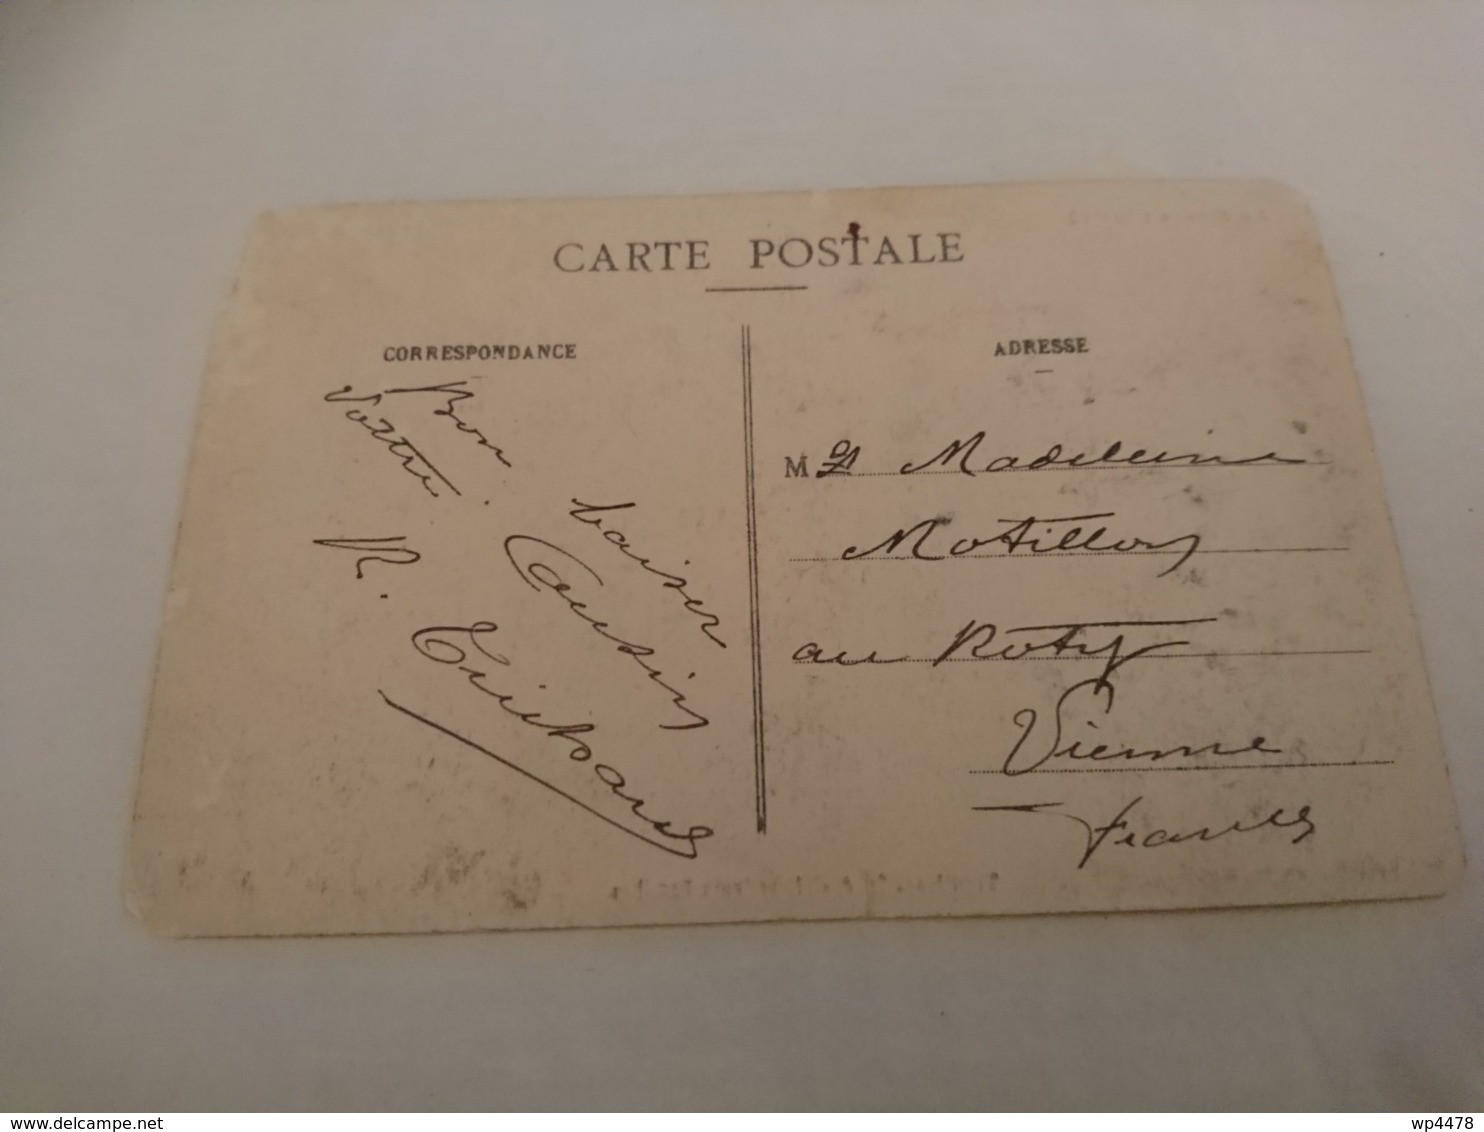 CARTE POSTALE
CORRESPONDANCE
Bon baiser
Votre Cousin
R.
ADRESSE
Madeleine
Motillon
au
Vienne
France
delcampe.net
wp4478